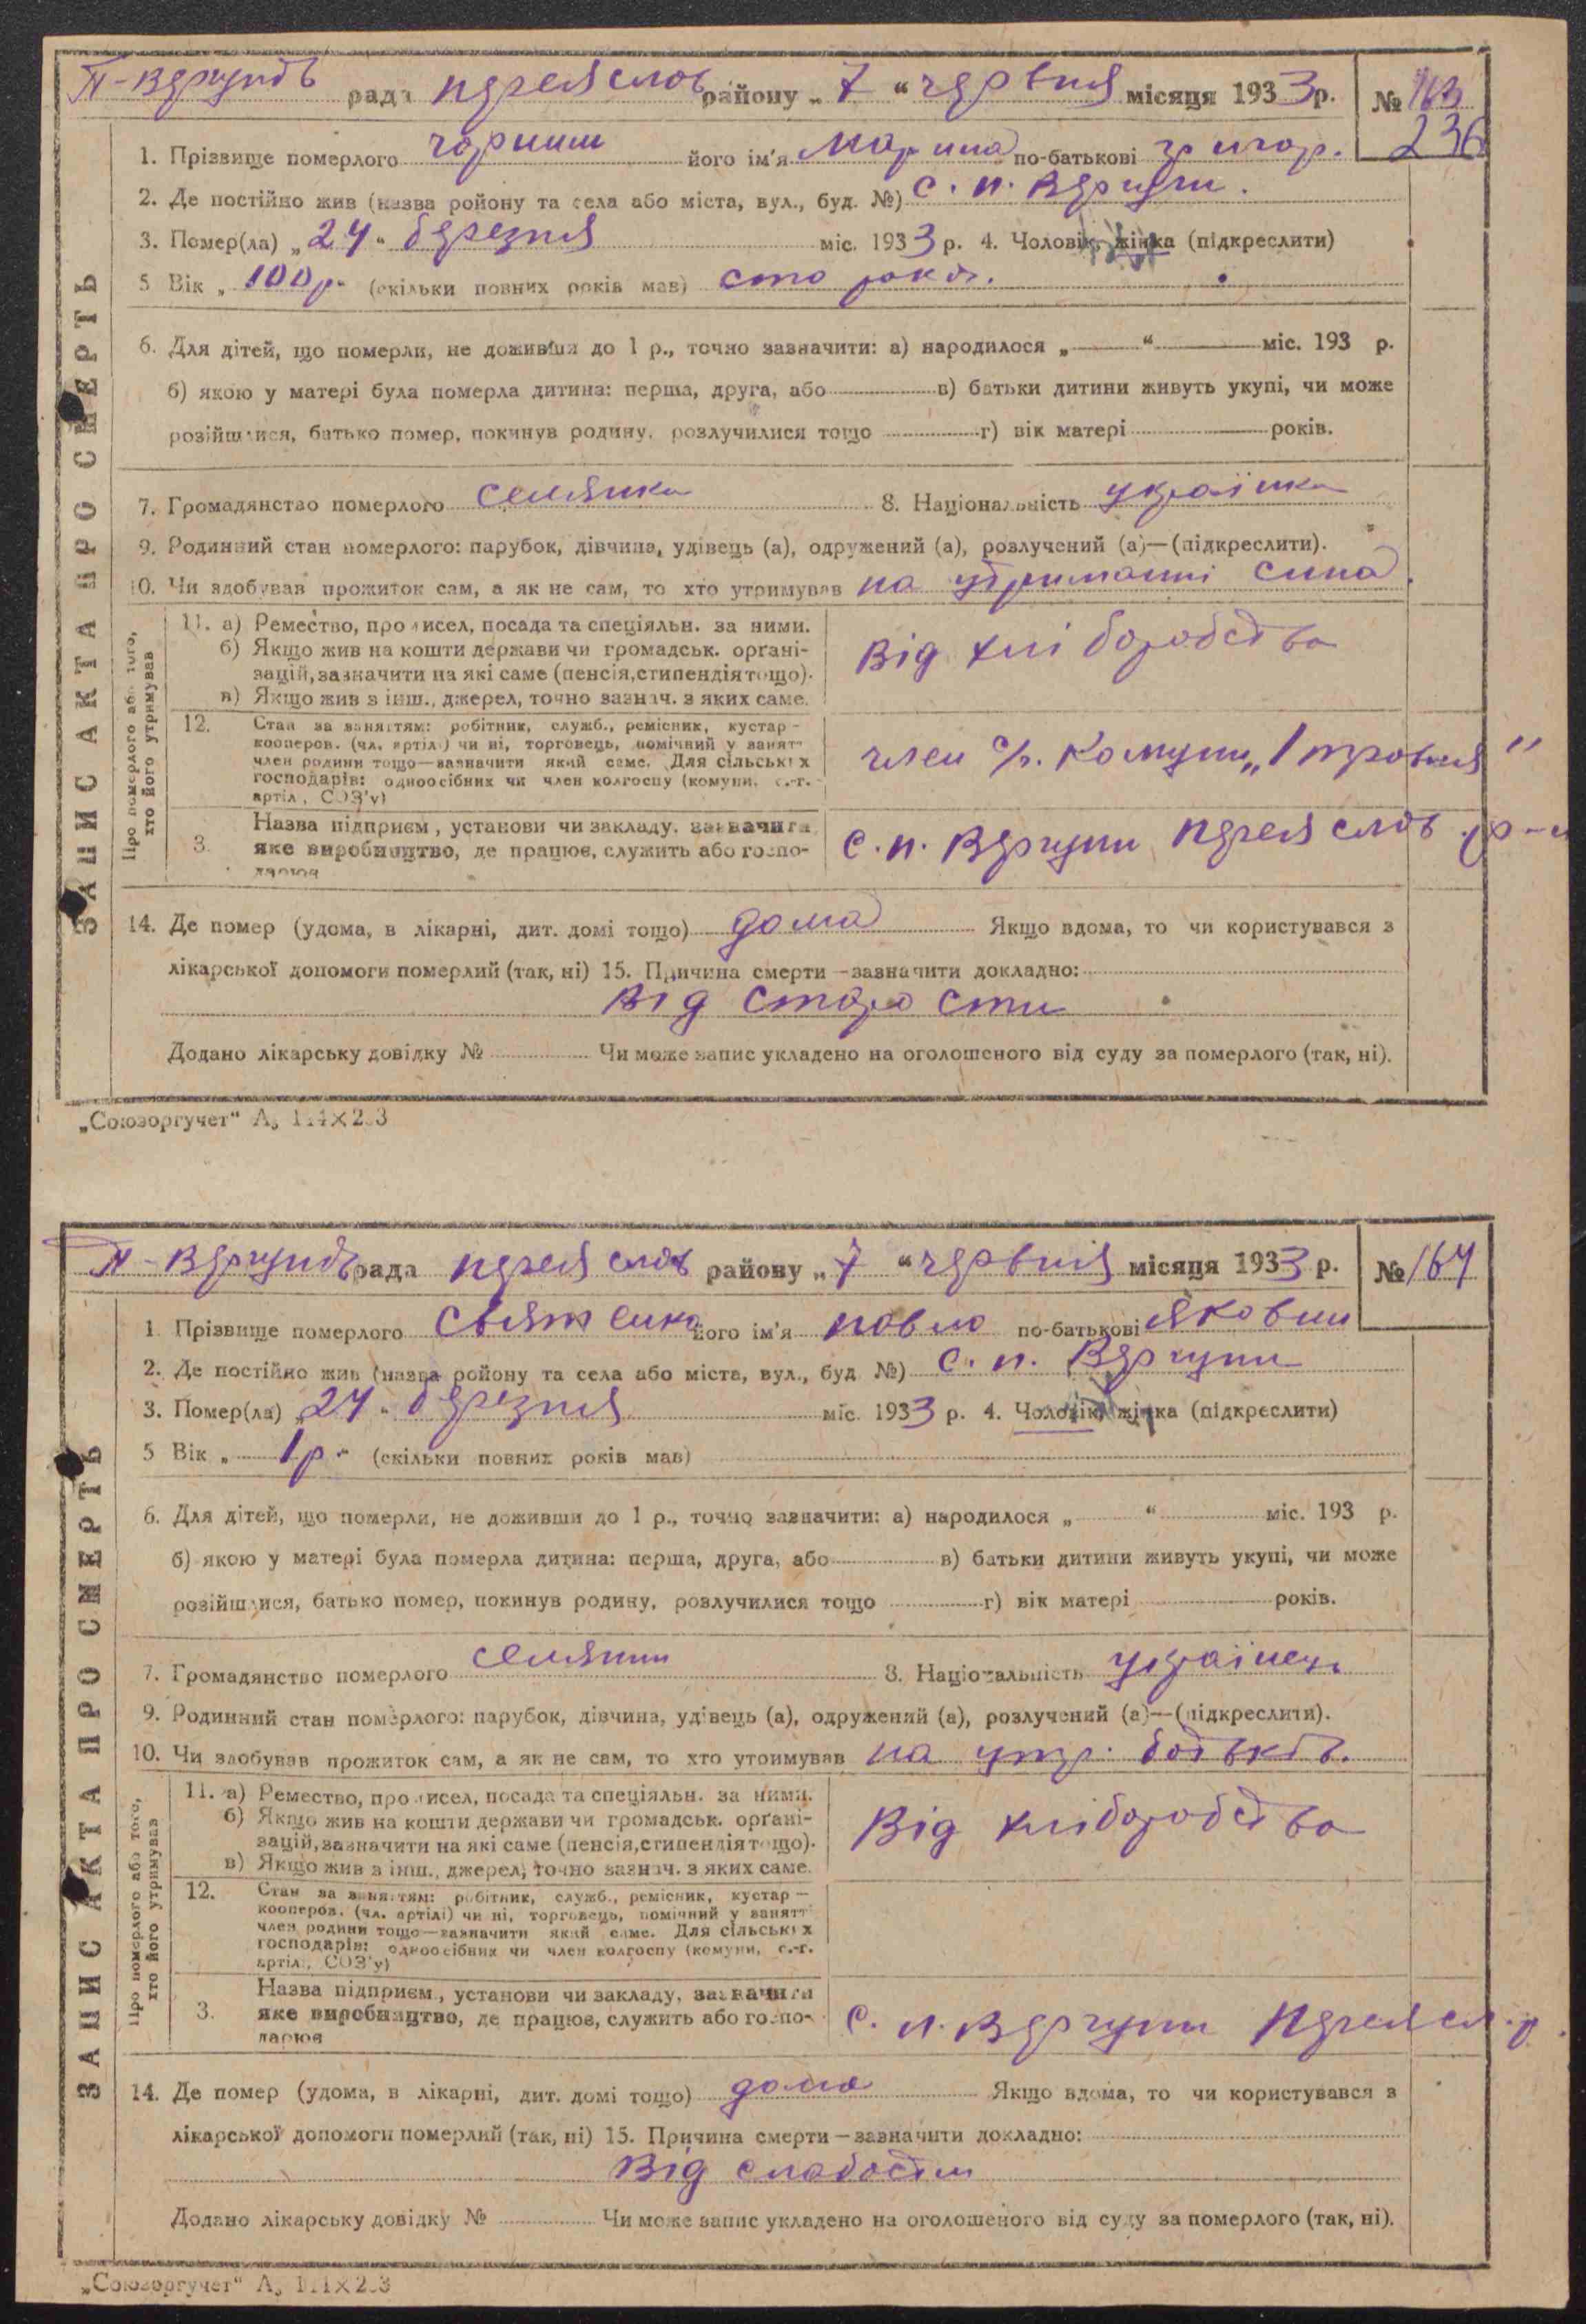 П-Вергунів рада переяслов району „ 7 “ червня місяця 1933 р. № 163
236
1. Прізвище померлого чорниш його ім'я Марина по-батькові григор.
2. Де постійно жив (назва ройону та села або міста, вул., буд. №) с. п. Вергуни.
3. Помер(ла) „ 24 “ березня міс. 1933 р. 4. Чоловік, жінка (підкреслити)
5 Вік „ 100 р. “ (скільки повних років мав) сто років.
6. Для дітей, що померли, не доживши до 1 р., точно зазначити: а) народилося „ “ міс. 193 р.
б) якою у матері була померла дитина: перша, друга, або в) батьки дитини живуть укупі, чи може
розійшлися, батько помер, покинув родину, розлучилися тощо г) вік матері років.
7. Громадянство померлого селянка 8. Національність українка
9. Родинний стан померлого: парубок, дівчина, удівець (а), одружений (а), розлучений (а)—(підкреслити).
10. Чи здобував прожиток сам, а як не сам, то хто утримував на утриманні сина.
11. а) Ремество, промисел, посада та спеціяльн. за ними.
б) Якщо жив на кошти держави чи громадськ. орґані-
зацій, зазначити на які саме (пенсія, стипендія тощо).
в) Якщо жив з інш., джерел, точно зазнач. з яких саме.
Від хліборобства
12. Стан за заняттям: робітник, служб., ремісник, кустар —
кооперов. (чл. артілі) чи ні, торговець, помічний у занятт
член родини тощо—зазначити який саме. Для сільських
господарів: одноосібник чи член колгоспу (комуни, с.-г.
артіл., СОЗ'у)
член с/г. Комуни „1 травня“
3. Назва підприєм., установи чи закладу, зазначити
яке виробництво, де працює, служить або госпо-
дарює
с. п. Вергуни переяслов. р-н
14. Де помер (удома, в лікарні, дит. домі тощо) дома Якщо вдома, то чи користувався з
лікарської допомоги померлий (так, ні) 15. Причина смерти—зазначити докладно:
Від старости
Додано лікарську довідку № Чи може запис укладено на оголошеного від суду за померлого (так, ні).
ЗАПИС АКТА ПРО СМЕРТЬ
Про померлого або того,
хто його утримував
„Союзоргучет“
П-Вергунів рада переяслов району „ 7 “ червня місяця 1933 р. № 164
1 Прізвище померлого Святенко його ім'я павло по-батькові Якович
2. Де постійно жив (назва ройону та села або міста, вул., буд №) с. п. Вергуни
3. Помер(ла) „ 24 “ березня міс. 1933 р. 4. Чоловік, жінка (підкреслити)
5 Вік „ 1 р. “ (скільки повних років мав)
6. Для дітей, що померли, не доживши до 1 р., точно зазначити: а) народилося „ “ міс. 193 р.
б) якою у матері була померла дитина: перша, друга, або в) батьки дитини живуть укупі, чи може
розійшлися, батько помер, покинув родину, розлучилися тощо г) вік матері років.
7. Громадянство померлого селянин 8. Національність українець
9. Родинний стан померлого: парубок, дівчина, удівець (а), одружений (а), розлучений (а)—(підкреслити).
10. Чи здобував прожиток сам, а як не сам, то хто утримував на утр. батьків.
11. а) Ремество, промисел, посада та спеціяльн. за ними.
б) Якщо жив на кошти держави чи громадськ. орґані-
зацій, зазначити на які саме (пенсія, стипендія тощо).
в) Якщо жив з інш., джерел, точно зазнач. з яких саме.
Від хліборобства
12. Стан за заняттям: робітник, служб., ремісник, кустар —
кооперов. (чл. артілі) чи ні, торговець, помічний у занятт
член родини тощо—зазначити який саме. Для сільських
господарів: одноосібник чи член колгоспу (комуни, с.-г.
артіл., СОЗ'у)
3. Назва підприєм., установи чи закладу, зазначити
яке виробництво, де працює, служить або госпо-
дарює
с. п. Вергуни Переясл. р.
14. Де помер (удома, в лікарні, дит. домі тощо) дома Якщо вдома, то чи користувався з
лікарської допомоги померлий (так, ні) 15. Причина смерти—зазначити докладно:
Від слабости
Додано лікарську довідку № Чи може запис укладено на оголошеного від суду за померлого (так, ні).
ЗАПИС АКТА ПРО СМЕРТЬ
Про померлого або того,
хто його утримував
„Союзоргучет“